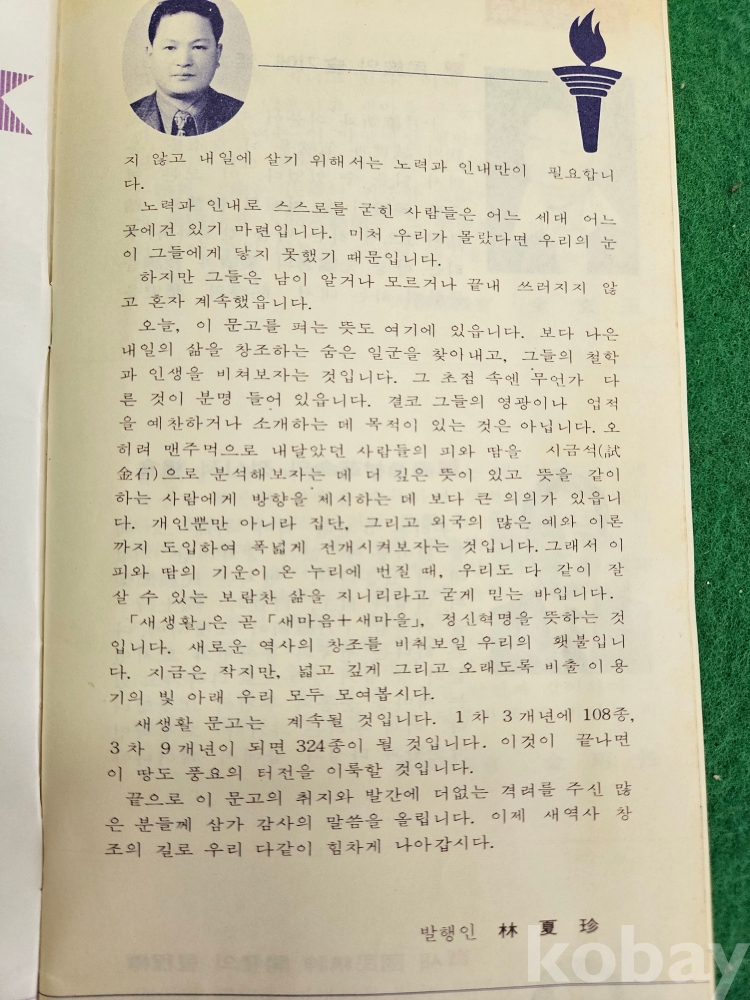 지 않고 내일에 살기 위해서는 노력과 인내만이 필요합니
다.
노력과 인내로 스스로를 굳힌 사람들은 어느 세대 어느
곳에건 있기 마련입니다. 미처 우리가 몰랐다면 우리의 눈
이 그들에게 닿지 못했기 때문입니다.
하지만 그들은 남이 알거나 모르거나 끝내 쓰러지지 않
고 혼자 계속했읍니다.
오늘, 이 문고를 펴는 뜻도 여기에 있읍니다. 보다 나은
내일의 삶을 창조하는 숨은 일군을 찾아내고, 그들의 철학
과 인생을 비쳐보자는 것입니다. 그 초점 속엔 무언가 다
른 것이 분명 들어 있읍니다. 결코 그들의 영광이나 업적
을 예찬하거나 소개하는 데 목적이 있는 것은 아닙니다. 오
히려 맨주먹으로 내달았던 사람들의 피와 땀을 시금석(試
金石)으로 분석해보자는 데 더 깊은 뜻이 있고 뜻을 같이
하는 사람에게 방향을 제시하는 데 보다 큰 의의가 있읍니
다. 개인뿐만 아니라 집단, 그리고 외국의 많은 예와 이론
까지 도입하여 폭넓게 전개시켜보자는 것입니다. 그래서 이
피와 땀의 기운이 온 누리에 번질 때, 우리도 다 같이 잘
살 수 있는 보람찬 삶을 지니리라고 굳게 믿는 바입니다.
「새생활」은 곧 「새마음+새마을」, 정신혁명을 뜻하는 것
입니다. 새로운 역사의 창조를 비춰보일 우리의 횃불입니
다. 지금은 작지만, 넓고 깊게 그리고 오래도록 비출 이 용
기의 빛 아래 우리 모두 모여봅시다.
새생활 문고는 계속될 것입니다. 1차 3개년에 108종,
3차 9개년이 되면 324종이 될 것입니다. 이것이 끝나면
이 땅도 풍요의 터전을 이룩할 것입니다.
끝으로 이 문고의 취지와 발간에 더없는 격려를 주신 많
은 분들께 삼가 감사의 말씀을 올립니다. 이제 새역사 창
조의 길로 우리 다같이 힘차게 나아갑시다.
발행인 林 夏 珍
kobay